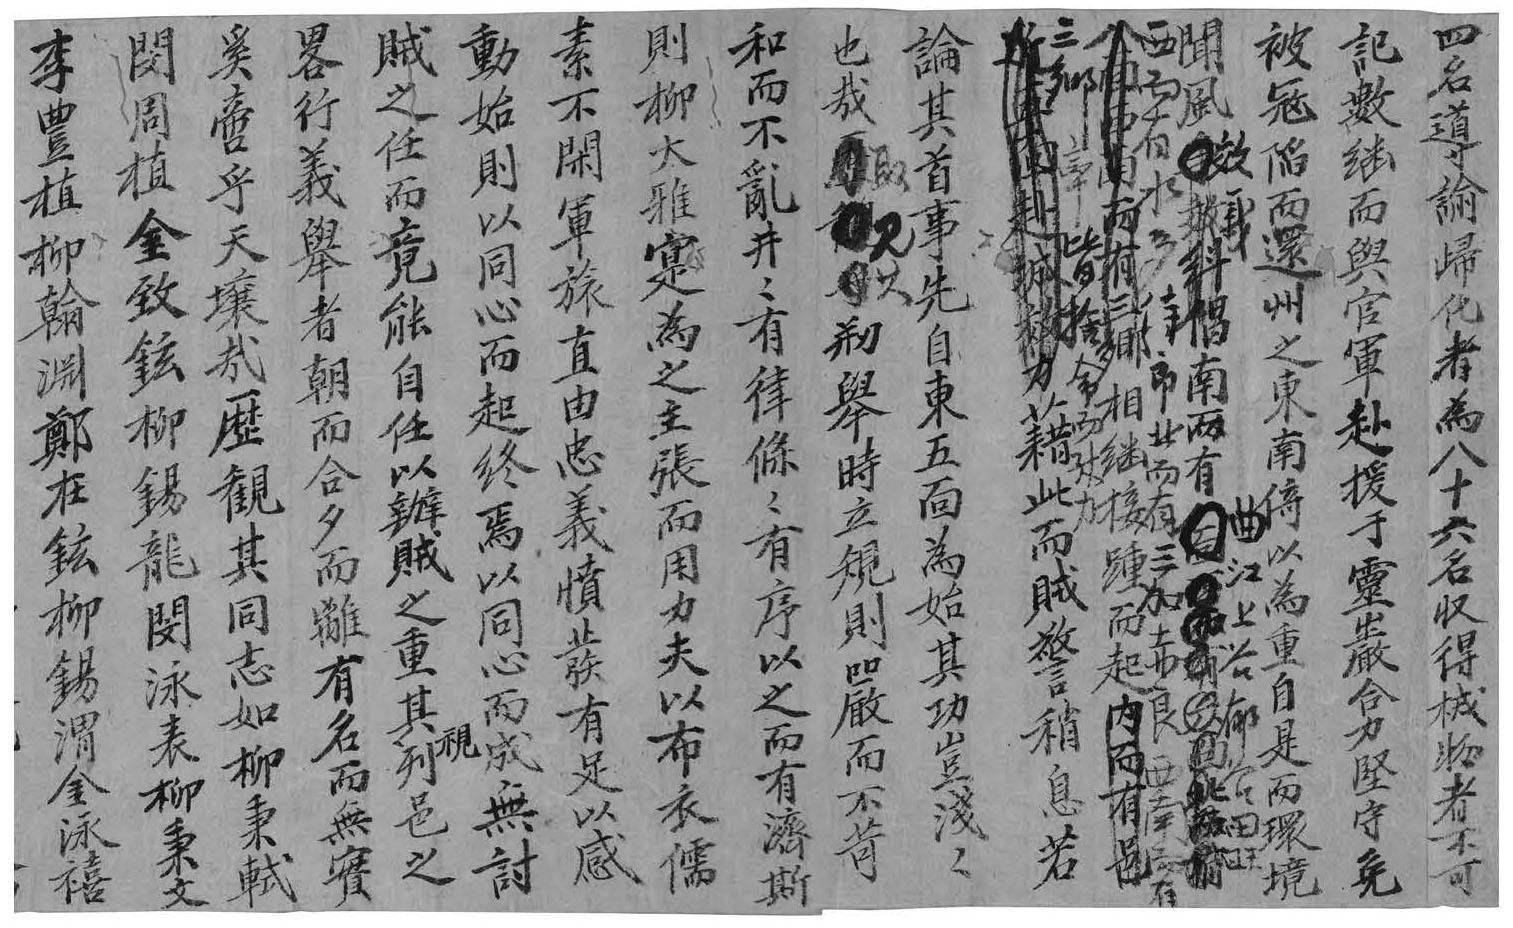 四名道諭歸化者為八十六名收得械物者不可
記數繼而與官軍赴援于靈巖合力堅守免
被寇陷而還州之東南倚以為重自是而環境
聞風效義倡南而有曲江上谷郁
西而有水多侍郎北而有三加赤良西南又有
三鄉率皆捨命而財力
相繼接踵而起
藉此而賊警稍息若
論其首事先自東五面為始其功豈淺〻
也哉取見其刱舉時立規則凹嚴而不苛
和而不亂井〻有律條〻有序以之而有濟斯
則柳大雅寔為之主張而用力夫以布衣儒
素不閑軍旅直由忠義憤發有足以感
動始則以同心而起終焉以同心而成無討
賊之任而竟能自任以辦賊之重其視列邑之
畧行義舉者朝而合夕而離有名而無實
奚啻乎天壤哉歷觀其同志如柳秉軾
閔周植金致鉉柳錫龍閔泳表柳秉文
李豊植柳翰淵鄭在鉉柳錫渭金泳禧